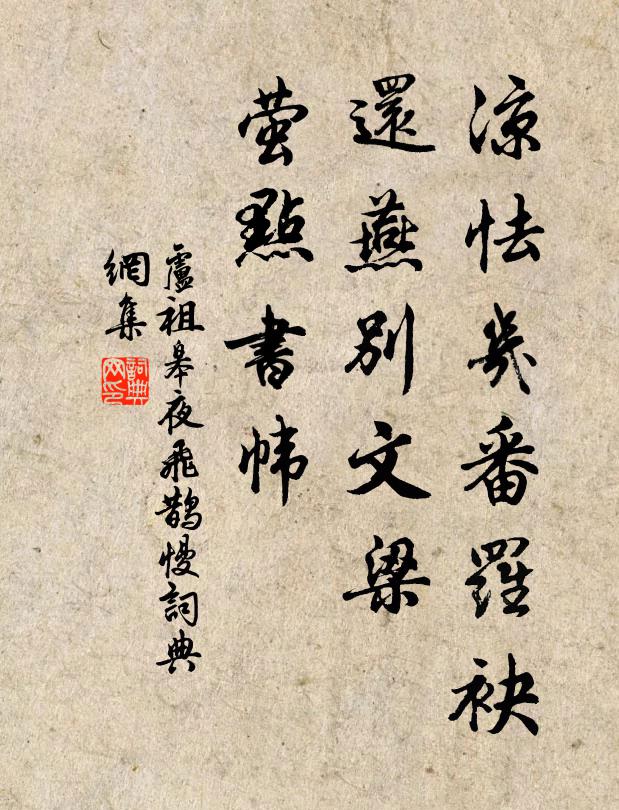 涼怯幾番羅袂
還燕別文梁
螢點書幃
盧祖皋夜飛鵲慢詞典
網集
詞典
网印